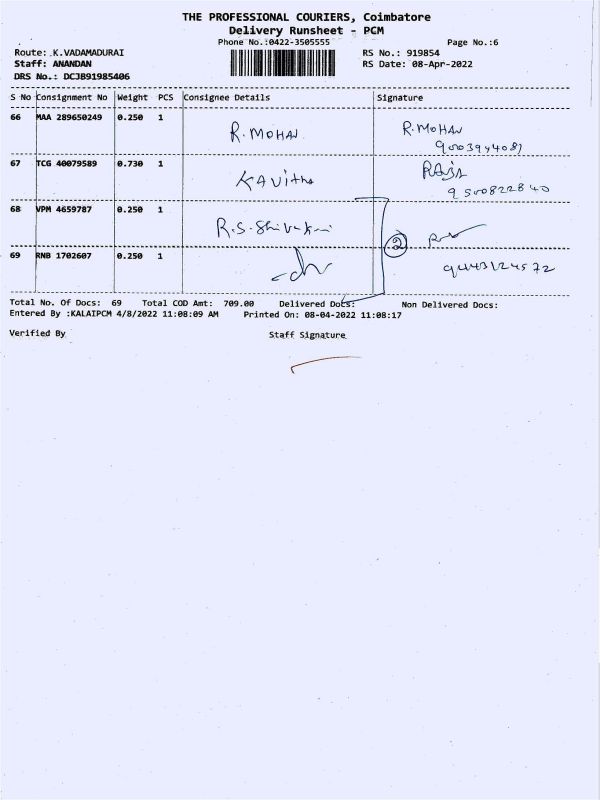 THE PROFESSIONAL COURIERS, Coimbatore
Delivery Runsheet - PCM
Phone No.:0422-3505555 Page No.:6
Route: .K.VADAMADURAI RS No.: 919854
Staff: ANANDAN RS Date: 08-Apr-2022
DRS No.: DCJB91985406
S No Consignment No Weight PCS Consignee Details Signature
66 MAA 289650249 0.250 1 R.MOHAN R.MOHAN
67 TCG 40079589 0.730 1 KAVitha
9500822840
68 VPM 4659787 0.250 1 R.S. 2
69 RNB 1702607 0.250 1 9443124572
Total No. Of Docs: 69 Total COD Amt: 709.00 Delivered Docs: Non Delivered Docs:
Entered By :KALAIPCM 4/8/2022 11:08:09 AM Printed On: 08-04-2022 11:08:17
Verified By Staff Signature